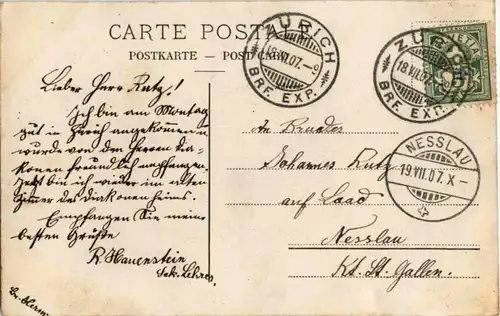 CARTE POSTALE
POSTKARTE - POST CARD
ZÜRICH
18.VII.07.
BRF. EXP.
ZÜRICH
18.VII.07.
BRF. EXP.
NESSLAU
19.VII.07.X-
Lieber Herr Rutz!
Ich bin am Montag
gut in Zürich angekommen u
wurde von den Herren Dia-
konen freundlich empfangen.
Jetzt bin ich wieder im alten
Zimer des Diakonenheims.
Empfangen Sie meine
besten Grüße
R. Hauenstein
Sek. Lehrer.
An Bruder
Johannes Rutz
auf Laad
Nesslau
Kt. St. Gallen.